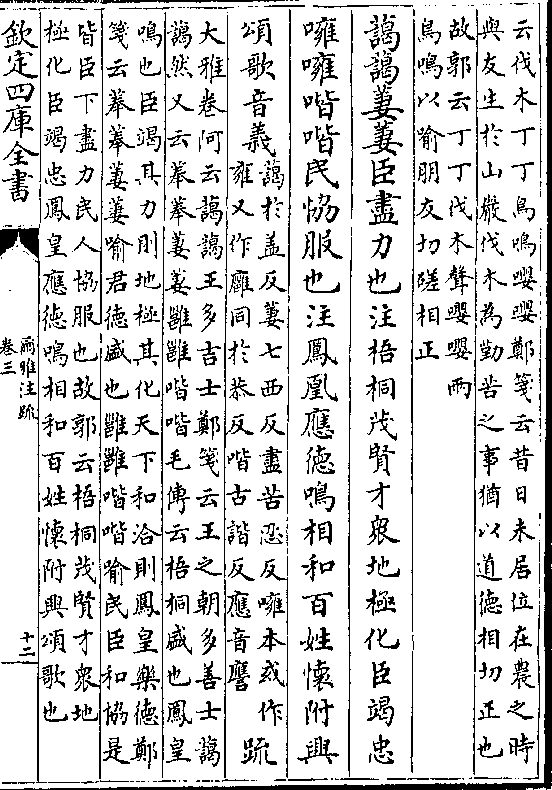 云伐木丁丁鳥鳴嚶嚶鄭箋云昔日未居位在農之時
與友生於山巖伐木為勤苦之事猶以道德相切正也
故郭云丁丁伐木聲嚶嚶兩
鳥鳴以喻朋友切磋相正
藹藹萋萋臣盡力也注梧桐茂賢才衆地極化臣竭忠
噰噰喈喈民協服也注鳳凰應德鳴相和百姓懷附興
頌歌音義
藹於蓋反萋七西反盡苦忍反噰本或作
雍又作廱同於恭反喈古諧反應音譍
疏
大雅卷阿云藹藹王多吉士鄭箋云王之朝多善士藹
藹然又云菶菶萋萋雝雝喈喈毛傳云梧桐盛也鳳皇
鳴也臣竭其力則地極其化天下和洽則鳳皇樂德鄭
箋云菶菶萋萋喻君德盛也雝雝喈喈喻民臣和協是
皆臣下盡力民人協服也故郭云梧桐茂賢才衆地
極化臣竭忠鳳皇應德鳴相和百姓懷附興頌歌也
欽定四庫全書
爾雅注疏
卷三
十三